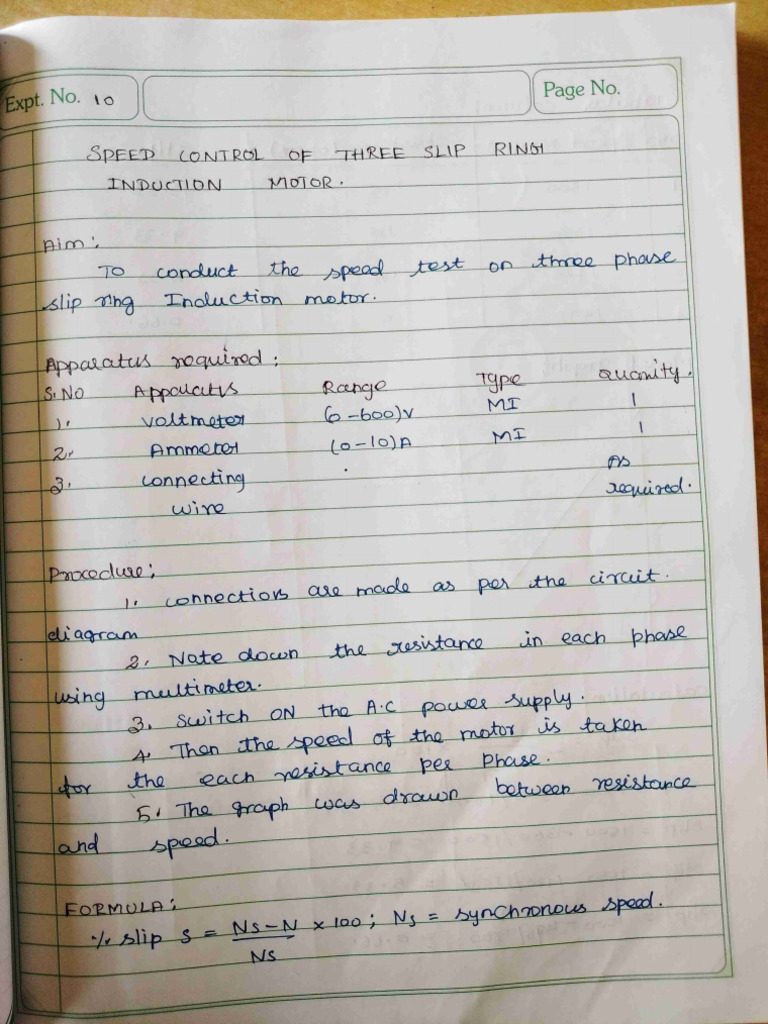 Expt. No. 10
Page No.
SPEED CONTROL OF THREE SLIP RING
INDUCTION MOTOR.
Aim:
To conduct the speed test on three phase
slip ring Induction motor.
Apparatus required:
S.NO Apparatus Range Type Quantity.
1. Voltmeter (0-600)V MI 1
2. Ammeter (0-10)A MI 1
3. Connecting As
wire required.
Procedure:
1. Connections are made as per the circuit.
diagram
2. Note down the resistance in each phase
using multimeter.
3. Switch ON the A.C power supply.
4. Then the speed of the motor is taken
for the each resistance per phase.
5. The graph was drawn between resistance
and speed.
FORMULA:
% slip S = Ns-N/Ns × 100; Ns = synchronous speed.